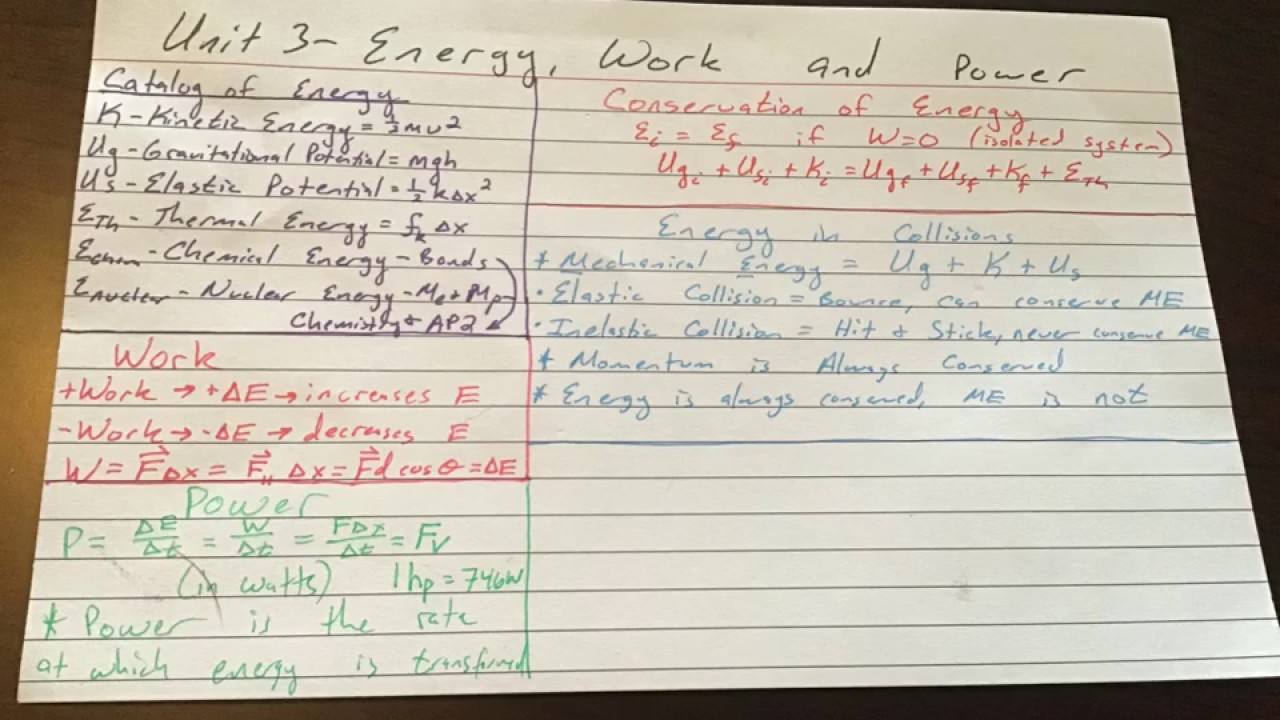 Unit 3- Energy, Work and Power
Catalog of Energy
K-Kinetic Energy = ½mv²
Ug-Gravitational Potential = mgh
Us-Elastic Potential = ½kΔx²
ETh-Thermal Energy = fk Δx
Echem-Chemical Energy-Bonds
Enuclear-Nuclear Energy-Me+Mp
Chemistry & AP2
Work
+Work → +ΔE → increases E
-Work → -ΔE → decreases E
W = F⃗Δx = F⃗ıı Δx = F⃗d cos θ = ΔE
Power
P = ΔE/Δt = W/Δt = FΔx/Δt = Fv
(in watts) 1hp = 746W
* Power is the rate
at which energy is transformed
Conservation of Energy
Ei = Ef if W=0 (isolated system)
Ugi + Usi + Ki = Ugf + Usf + Kf + ETh
Energy in Collisions
* Mechanical Energy = Ug + K + Us
· Elastic Collision = Bounce, can conserve ME
· Inelastic Collision = Hit & Stick, never conserve ME
* Momentum is Always Conserved
* Energy is always conserved, ME is not